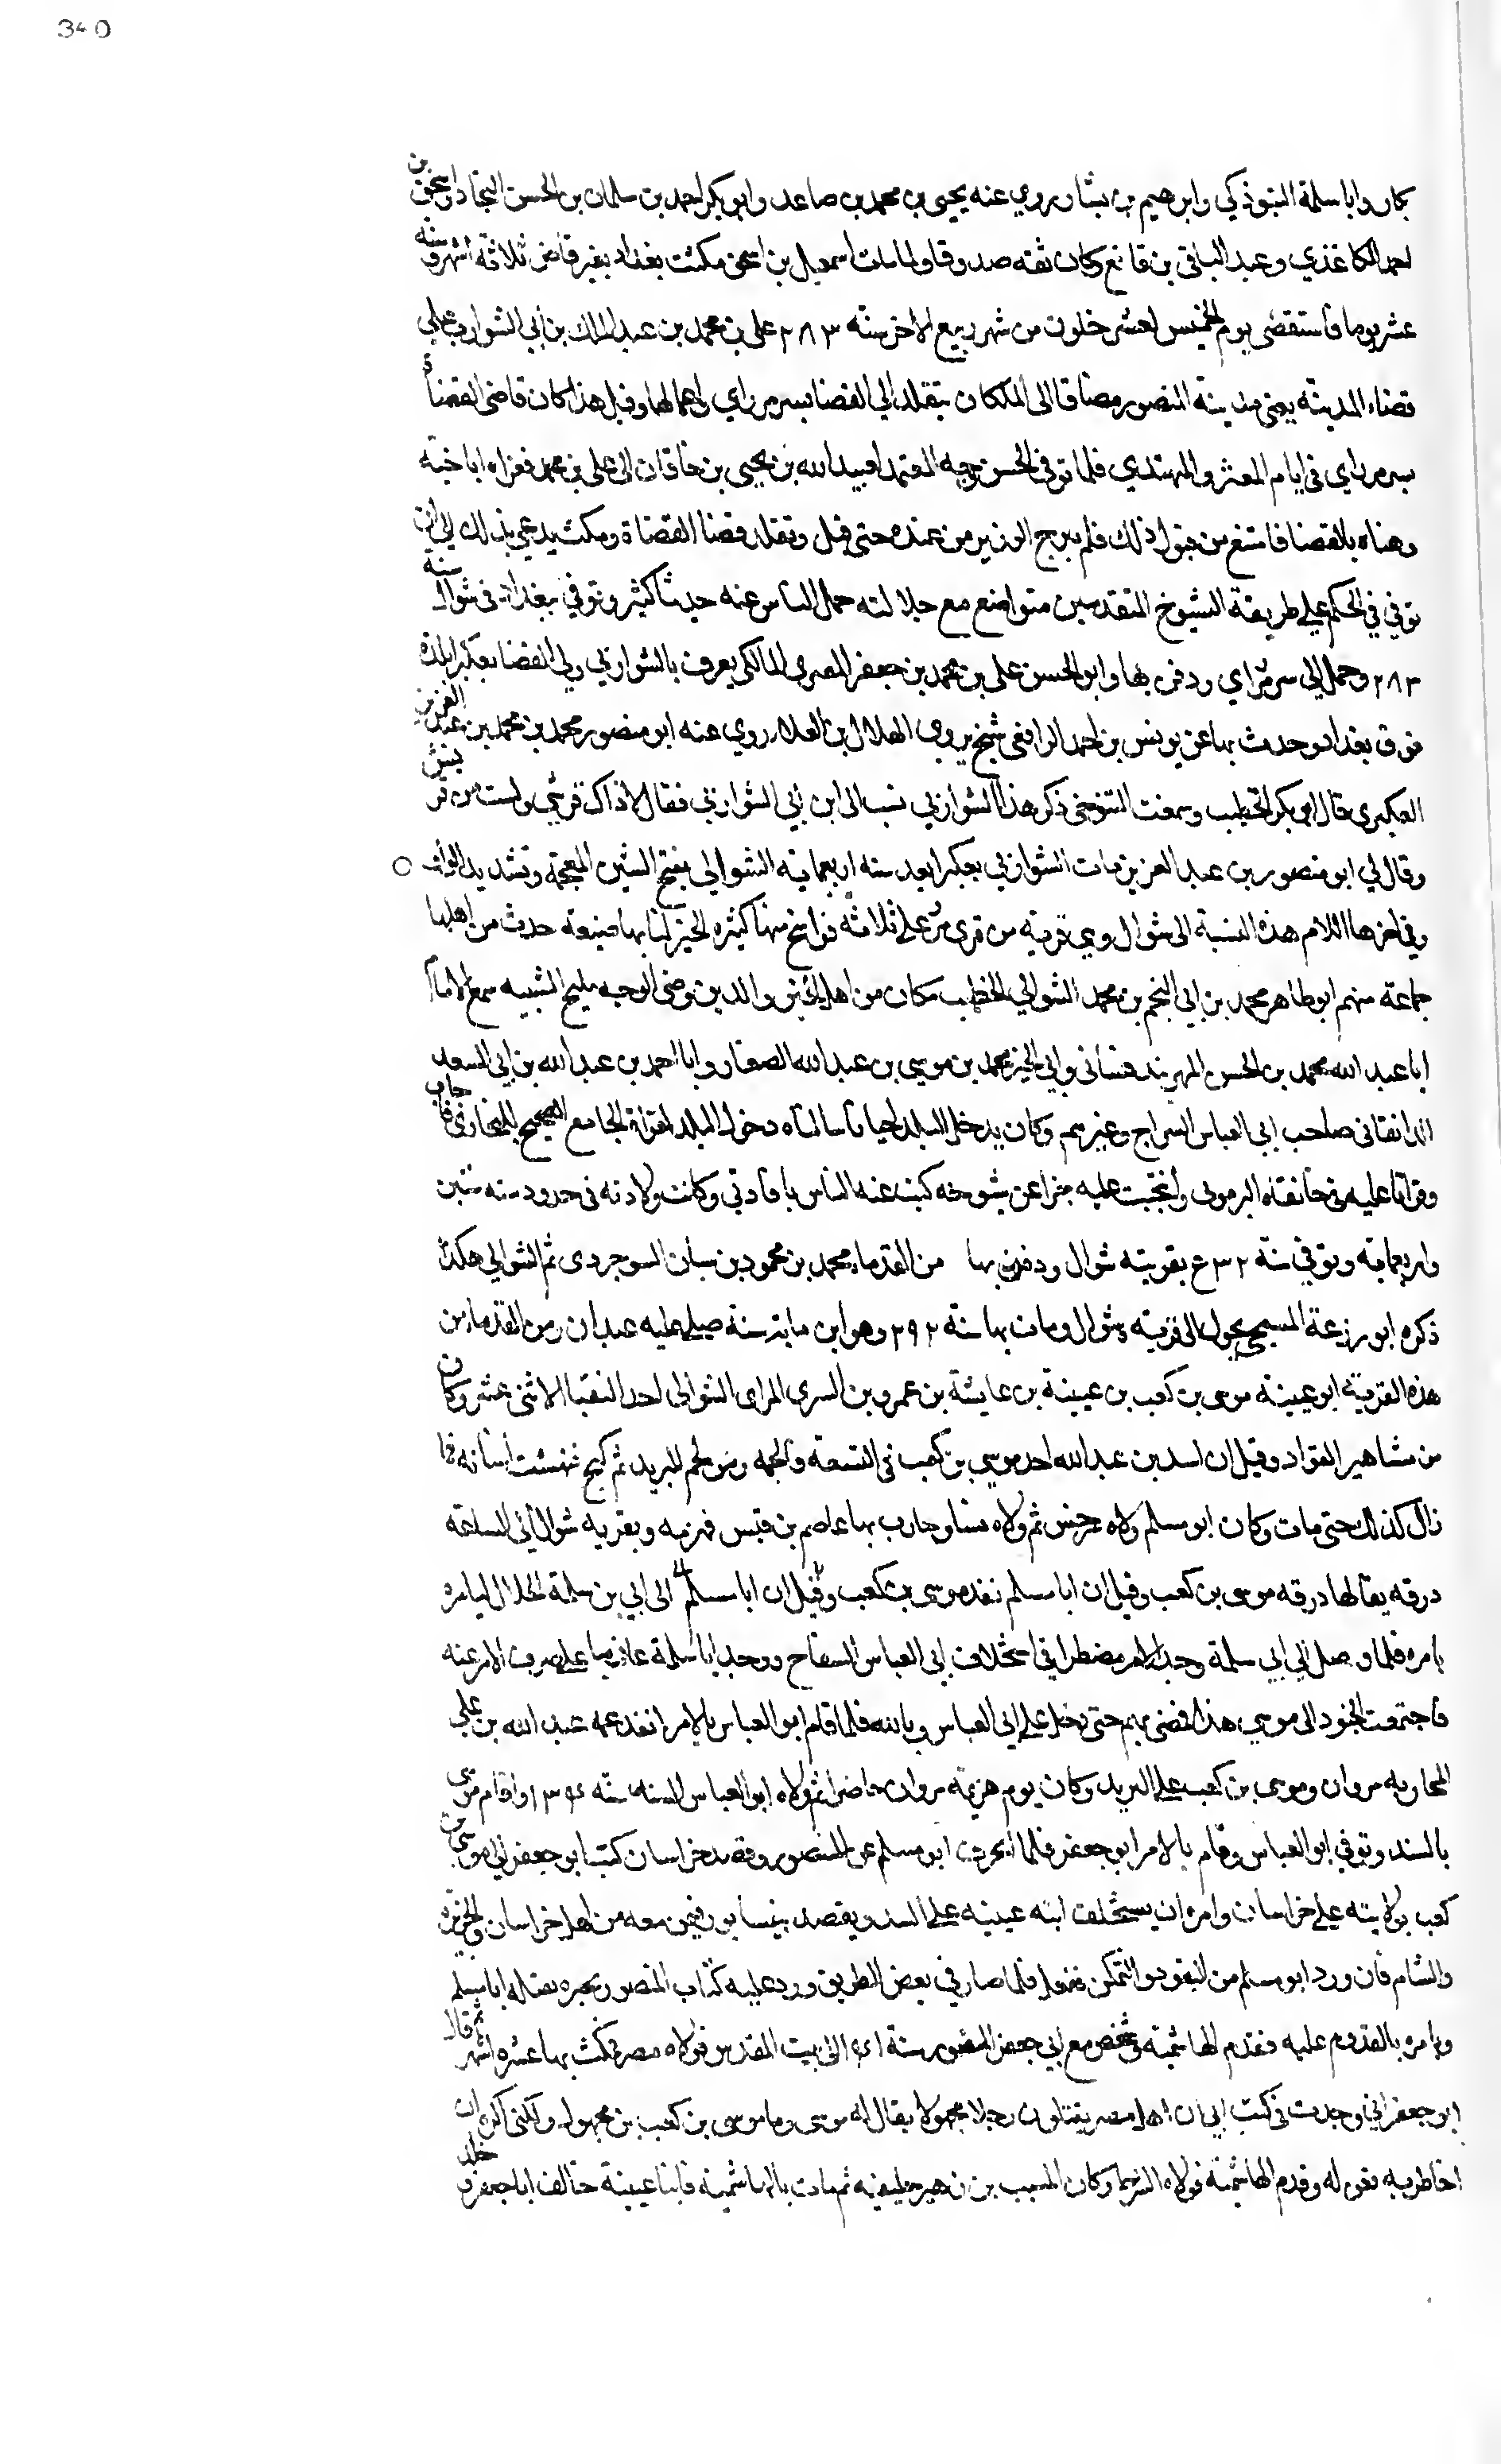 340
بكار وابا سلمة التبوذكي وابرهيم بن بشار روي عنه يحيى بن محمد بن صاعد وابو بكر احمد بن سلمان بن الحسن النجاد واسحق بن
احمد الكاغذي وعبد الباقي بن قانع وكان ثقه صدوقا ولما مات اسمعيل بن اسحق مكثت بغداد بغير قاض ثلاثة اشهر وستة
عشر يوما فاستقضى يوم الخميس لعشر خلون من شهر ربيع الاخر سنه ٢٨٣ على بن محمد بن عبد الملك بن ابي الشوارب على
قضاء المدينة يعنى مدينة المنصور مضافا الى ما كان يتقلد الي القضا بسر من راي واعمالها وقبل هذا كان قاضى القضاة
بسر من راي في ايام المعتز والمهتدي فلما توفي الحسن وجه المعتمد لعبيد الله بن يحيى بن خاقان الى على بن محمد فعزاه باخيه
وهناه بالقضا فامتنع من قبول ذلك فلم يبرح الوزير من عنده حتى قبل وتقلد قضا القضاة ومكث يدعي بذلك الى ان
توفي في الحكم على طريقة الشيوخ المتقدمين متواضع مع جلالته حمل الناس عنه حديثا كثير وتوفي ببغداد في شوال سنة
٢٨٣ وحمل الي سر من راي ودفن بها وابو الحسن على بن محمد بن جعفر المصري المالكي يعرف بالشواربي ولي القضا بعكبرا بلدة
فوق بغداد وحدث بها عن يونس بن احمد الرافقي شيخ يروي الهلال بن العلاء روي عنه ابو منصور محمد بن محمد بن عبد العزيز
العكبري قال ابو بكر الخطيب وسمعت التنوخي ذكر هذا الشواربي نسب الى ابن ابي الشوارب فقال لا ذاك قرشي وليس من قريش
وقال لي ابو منصور بن عبد العزيز مات الشواربي بعكبرا بعد سنه اربعماية الشوالي بفتح الشين المعجمة وتشديد الواو
وفي اخرها اللام هذه النسبة الى شوال وهي قرية من قرى مرو على ثلاثة فراسخ منها كثيره الخير حدث من اهلها
جماعة منهم ابو طاهر محمد بن ابي النجم بن محمد الشوالي الخطيب كان من اهل الخير والدين رضى الوجه مليح الشيبه سمع الامام
ابا عبد الله محمد بن الحسن المهربندقشائى وابي الخير محمد بن موسى بن عبد الله الصفار وابا احمد بن عبد الله بن ابي السعد
الدانقانى صاحب ابي العباس السراج وغيرهم وكان يدخل البلد احيانا سالناه دخول البلد لقراة الجامع الصحيح للبخاري فاجاب
وقراناه عليه في خانقاه البرموني وانتخبت عليه جزا عن شيوخه كتب عنه الناس بافادتي وكانت ولادته في حدود سنه ستين
واربعماية وتوفي سنة ٥٣٢ بقريته شوال ودفن بها من القدماء محمد بن محمود بن سبان السوجردى ثم الشوالي هكذا
ذكره ابو زرعة السبحي تحول الى قرية شوال ومات بها سنة ٢٩٢ وهو ابن ماية سنة صلى عليه عبدان ومن القدماء من
هذه القرية ابو عيينه موسى بن كعب بن عيينة بن عايشة بن عمرو بن السري المراى الشوالى احد النقبا الاثنى عشر وكان
من مشاهير القواد وقيل ان اسد بن عبد الله اخذ موسى بن كعب في التهمة والجمه ثم كبح فهشمت اسنانه فما
زال كذلك حتى مات وكان ابو مسلم ولاه سرخس ثم ولاه نسا وحارب بها عاصم بن قيس فهزمه وبقريه شوال الى الساعة
درقه يقالها درقه موسى بن كعب وقيل ان ابا مسلم نفذ موسى بن كعب وقيل ان ابا مسلم الى ابي سلمة الخلال ليامره
بامره فلما وصل الي ابي سلمة وجد الامر مضطرا في استخلاف ابي العباس السفاح ووجد ابا سلمة عازما على صرف الامر عنه
فاجتمعت الجنود الى موسى هذا فمضى بهم حتى دخل على ابي العباس وبايعه فلما قام ابو العباس بالامر انفد عمه عبد الله بن علي
لمحاربة مروان وموسى بن كعب على البريد وكان يوم هزيمة مروان حاضرا ثم ولاه ابو العباس السند سنة ١٣٤ واقام موسى
بالسند وتوفي ابو العباس وقام بالامر ابو جعفر فلما انحرف ابو مسلم عن المنصور وقصد خراسان كتب ابو جعفر الى موسى بن
كعب بولايته على خراسان وامره ان يستخلف ابنه عيينه على السند ويقصد نيسابور فيمن معه من اهل خراسان والجزيرة
والشام فان ورد ابو مسلم من النفوذ والتمكن ففعل فلما صار في بعض الطريق ورد عليه كتاب المنصور يخبره بقتله ابا مسلم
ويامره بالقدوم عليه فقدم الهاشمية فشخص مع ابي جعفر المنصور سنة ١٤١ الى بيت المقدس فولاه مصر فمكث بها عشرة اشهر ثم قال
ابو جعفر اني وجدت في كتب ابى ان اهل مصر يقتلون رجلا مجهولا يقال له موسى وما موسى بن كعب بن مجهول ولكنى اكره ان
اخاطر به بقوم له وقدم الهاشمية فولاه الشرط وكان المسيب بن زهير خليفته ثم مات بالهاشمية فابنا عيينة خالف ابا جعفر وخلد